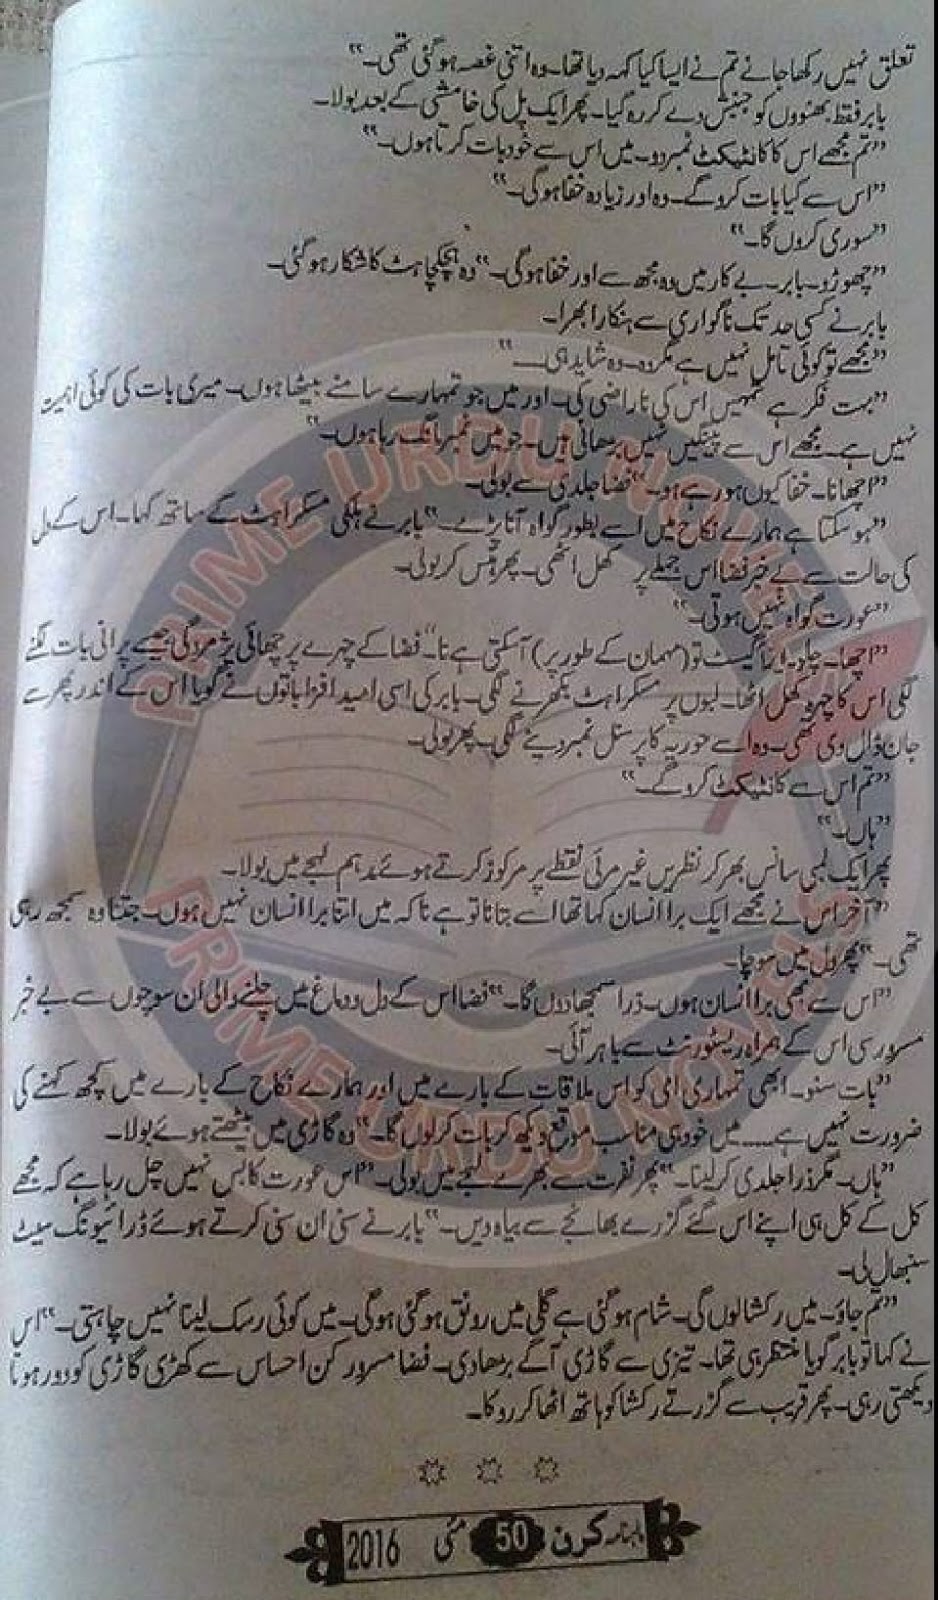 تعلق نہیں رکھا جانے تم نے ایسا کیا کہہ دیا تھا۔ وہ اتنی غصہ ہو گئی تھی۔"
بابر فقط بھنووں کو جنبش دے کر رہ گیا۔ پھر ایک پل کی خامشی کے بعد بولا۔
"تم مجھے اس کا کانٹیکٹ نمبر دو۔ میں اس سے خود بات کرتا ہوں۔"
"اس سے کیا بات کرو گے۔ وہ اور زیادہ خفا ہو گی۔"
"سوری کروں گا۔"
"چھوڑو۔ بابر۔ بے کار میں وہ مجھ سے اور خفا ہو گی۔" وہ ہچکچاہٹ کا شکار ہو گئی۔
بابر نے کسی حد تک ناگواری سے ہنکارا بھرا۔
"مجھے تو کوئی تامل نہیں ہے مگر وہ۔ وہ شاید ہی۔۔۔"
"بہت فکر ہے تمہیں اس کی ناراضی کی۔ اور میں جو تمہارے سامنے بیٹھا ہوں۔ میری بات کی کوئی اہمیت
نہیں ہے۔ مجھے اس سے پینگیں نہیں بڑھانی ہیں۔ جو میں نمبر مانگ رہا ہوں۔"
"اچھا نا۔ خفا کیوں ہو رہے ہو۔" فضا جلدی سے بولی۔
"ہو سکتا ہے ہمارے نکاح میں اسے بطور گواہ آنا پڑے۔" بابر نے ہلکی مسکراہٹ کے ساتھ کہا۔ اس کے دل
کی حالت سے بے خبر فضا اس جملے پر کھل اٹھی۔ پھر ہنس کر بولی۔
"عورت گواہ نہیں ہوتی۔"
"اچھا۔ چلو۔ ایز اے گیسٹ تو (مہمان کے طور پر) آ سکتی ہے نا۔" فضا کے چہرے پر چھائی پژمردگی جیسے پرانی بات لگنے
لگی اس کا چہرہ کھل اٹھا۔ لبوں پر مسکراہٹ بکھرنے لگی۔ بابر کی اسی امید افزا باتوں نے گویا اس کے اندر پھر سے
جان ڈال دی تھی۔ وہ اسے حوریہ کا پرسنل نمبر دینے لگی۔ پھر بولی۔
"تم اس سے کانٹیکٹ کرو گے۔"
"ہاں۔"
پھر ایک لمبی سانس بھر کر نظریں غیر مرئی نقطے پر مرکوز کرتے ہوئے مدہم لہجے میں بولا۔
"آخر اس نے مجھے ایک برا انسان کہا تھا اسے بتانا تو ہے نا کہ میں اتنا برا انسان نہیں ہوں۔ جتنا وہ سمجھ رہی
تھی۔" پھر دل میں سوچا۔
"اس سے بھی برا انسان ہوں۔ ذرا سمجھا دوں گا۔" فضا اس کے دل و دماغ میں چلنے والی ان سوچوں سے بے خبر
مسرور سی اس کے ہمراہ ریسٹورنٹ سے باہر آئی۔
"بات سنو۔ ابھی تمہاری امی کو اس ملاقات کے بارے میں اور ہمارے نکاح کے بارے میں کچھ کہنے کی
ضرورت نہیں ہے۔۔۔۔ میں خود ہی مناسب موقع دیکھ کر بات کر لوں گا۔" وہ گاڑی میں بیٹھتے ہوئے بولا۔
"ہاں۔ مگر ذرا جلدی کر لینا۔" پھر نفرت سے بھرے لہجے میں بولی۔ "اس عورت کا بس نہیں چل رہا ہے کہ مجھے
کل کے کل ہی اپنے اس گئے گزرے بھانجے سے بیاہ دیں۔" بابر نے سنی ان سنی کرتے ہوئے ڈرائیونگ سیٹ
سنبھال لی۔
"تم جاؤ۔ میں رکشا لوں گی۔ شام ہو گئی ہے گلی میں رونق ہو گئی ہو گی۔ میں کوئی رسک لینا نہیں چاہتی۔" اس
نے کہا تو بابر گویا منتظر ہی تھا۔ تیزی سے گاڑی آگے بڑھا دی۔ فضا مسرور کن احساس سے کھڑی گاڑی کو دور ہوتا
دیکھتی رہی۔ پھر قریب سے گزرتے رکشا کو ہاتھ اٹھا کر روکا۔
ماہنامہ کرن 50 مئی 2016
PRIME URDU NOVELS
PRIME URDU NOVELS